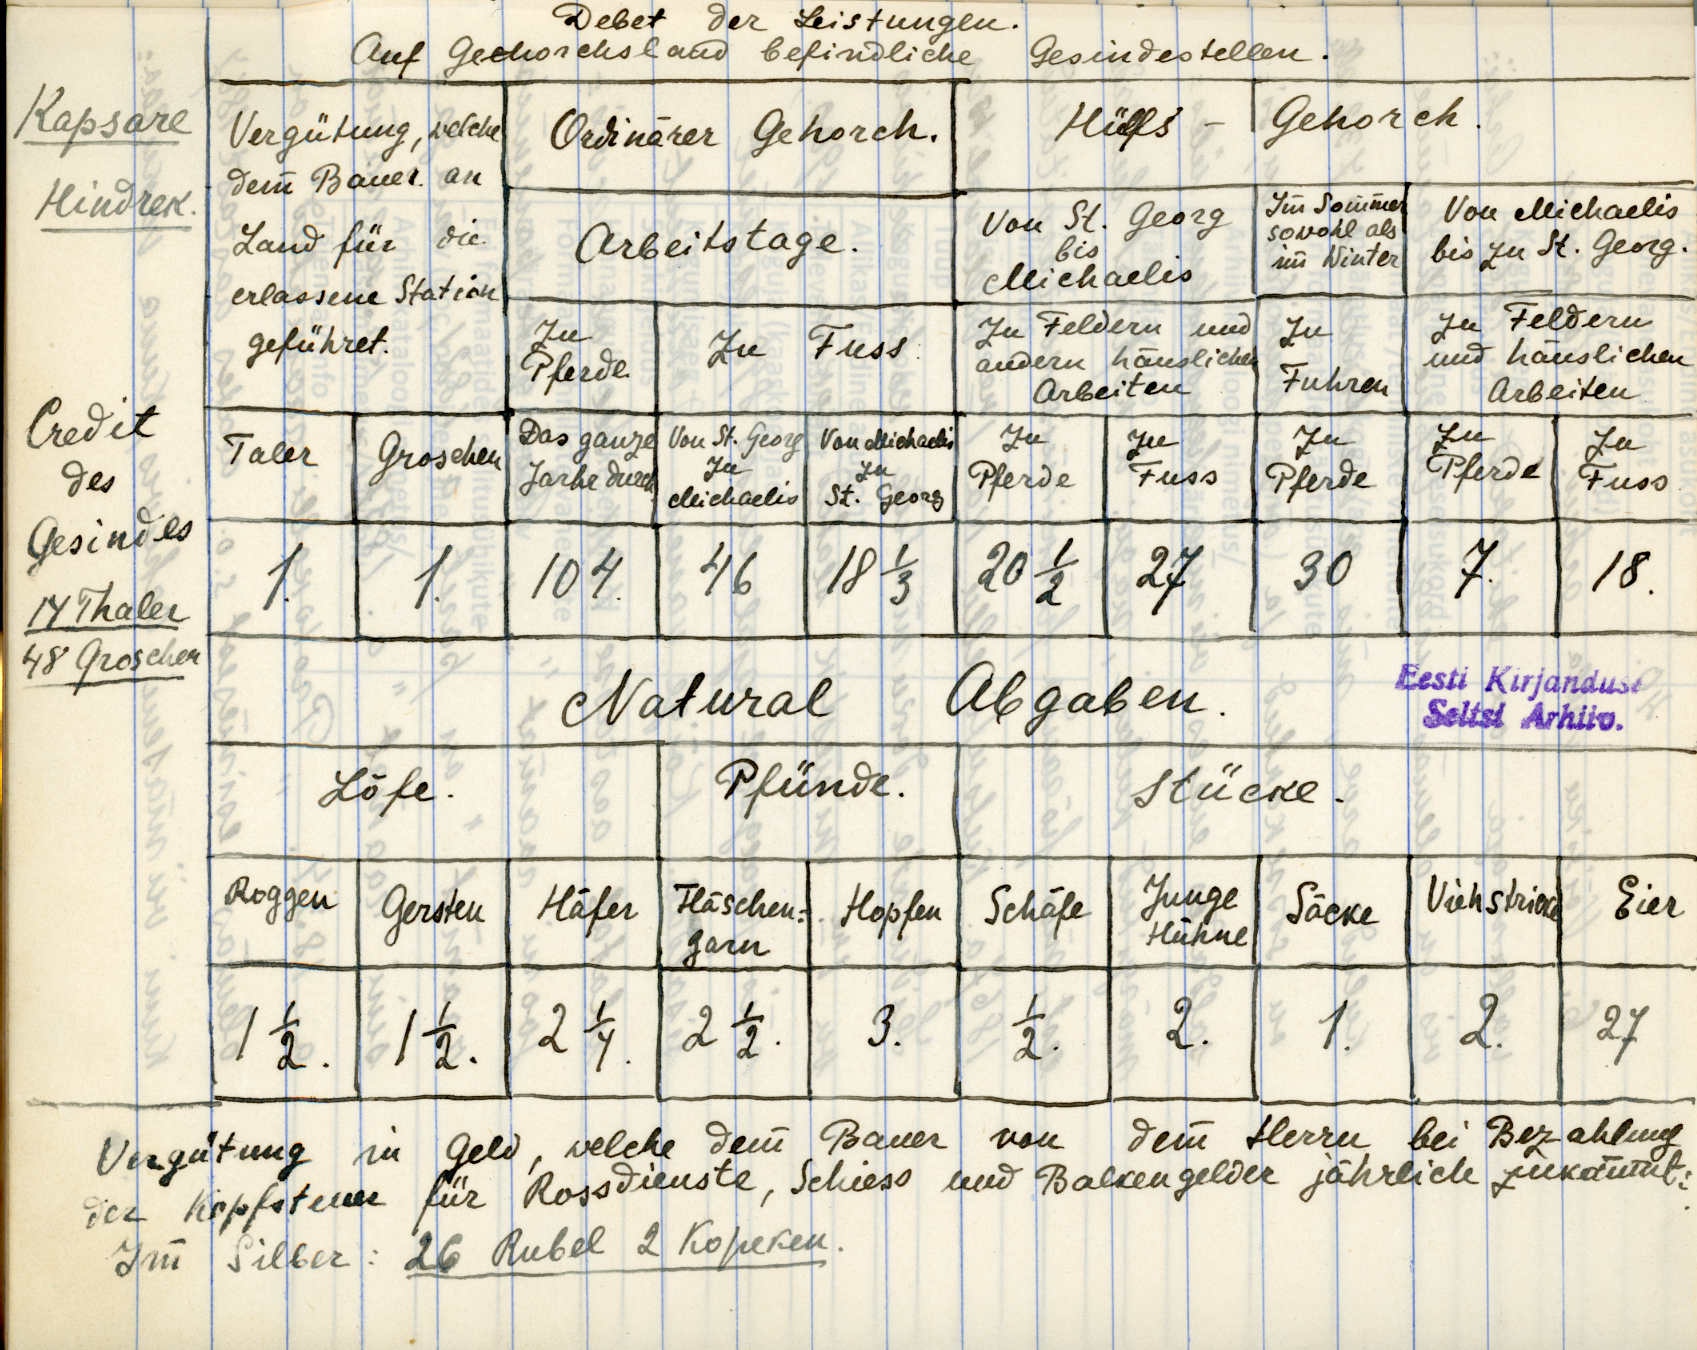 Debet der Leistungen.
Auf Gechorchsland befindliche Gesindestellen.
Kapsare
Hindrek.
Credit
des
Gesindes
14 Thaler
48 Groschen
Vergütung, welche
dem̄ Bauer an
Land für die
erlassene Station
geführet.
Ordinärer Gehorch.
Hülfs - Gehorch.
Arbeitstage.
Von St. Georg
bis
Michaelis
Im̄ Som̄mer
sowohl als
im̄ Winter
Von Michaelis
bis zu St. Georg.
Zu
Pferde
Zu Fuss
Zu Feldern und
andern häuslichen
Arbeiten
Zu
Fuhren
Zu Feldern
und häuslichen
Arbeiten
Taler
Groschen
Das ganze
Jarhe durch
Von St. Georg
Zu
Michaelis
Von Michaelis
zu
St. Georg
Zu
Pferde
Zu
Fuss
Zu
Pferde
Zu
Pferde
Zu
Fuss
1. 1. 104. 46 18 1/3 20 1/2 27 30 7. 18.
Natural Abgaben.
Eesti Kirjanduse
Seltsi Arhiiv.
Löfe. Pfünde. Stücke.
Roggen
Gersten
Häfer
Fläschen=
garn
Hopfen
Schäfe
Junge
Hühne
Säcke
Viehstricke
Eier
1 1/2. 1 1/2. 2 1/4. 2 1/2. 3. 1/2. 2. 1. 2. 27
Vergütung in Geld, welche dem̄ Bauer von dem̄ Herrn bei Bezahlung
der Kopfsteuer für Rossdienste, Schiess und Balkengelder jährlich zukäm̄mt:
Im̄ Silber: 26 Rubel 2 Kopeken.